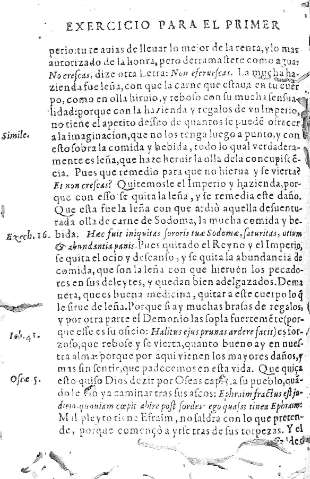 EXERCICIO PARA EL PRIMER
perio: tu te auias de lleuar lo mejor de la renta, y lo mas
autorizado de la honra, pero derramaste como agua:
No crescas, dize otra letra: Non efferuescas. La mucha ha-
zienda fue leña, con que la carne que estaua en tu cuer
po, como en olla hiruio, y rebosò con su mucha sensua-
lidad: porque con la hazienda y regalos de vn Imperio,
no tiene el apetito desseo de quantos se puede ofrecer
a la imaginacion, que no los tenga luego a punto, y con
esto sobra la comida y bebida, todo lo qual verdadera-
mente es leña, que haze heruir la olla de la concupisc̃e
cia. Pues que remedio para que no hierua y se vierta?
Et non crescas? Quitemosle el Imperio y hazienda, por-
que con esso se quita la leña, y se remedia este daño.
Que esta fue la leña con que ardiò aquella desuentu-
rada olla de carne de Sodoma, la mucha comida y be-
bida. Hæc fuit iniquitas sororis tuæ Sodomæ, saturitas, otium
& abundantia panis. Pues quitado el Reyno y el Imperio,
se quita el ocio y descanso, y se quita la abundancia de
comida, que son la leña con que hieruẽn los pecado-
res en sus deleytes, y quedan bien adelgazados. De ma
nera, que es buena medicina, quitar a este cuerpo lo q̃
le sirue de leña. Porque si ay muchas brasas de regalos,
y por otra parte el Demonio las sopla fuertemẽte (por-
que esse es su oficio: Halitus ejus prunas ardere facit) es for-
çoso, que rebose y se vierta, quanto bueno ay en nues-
tra alma: porque por aqui vienen los mayores daños, y
mas sin sentir, que padecemos en esta vida. Que quiça
esto quiso Dios dezir por Oseas a su pueblo, quã-
do le a caminar tras sus ascos: Ephraim fractus est ju-
dicio quoniam cœpit abire post sordes: ego quasi tinea Ephraim:
Mi pleyto tiene Efrain, no saldra con lo que preten-
de, porque començò a yrse tras de sus torpezas. Y el
Simile.
Ezech. 16.
Iob. 41.
Oseæ 5.